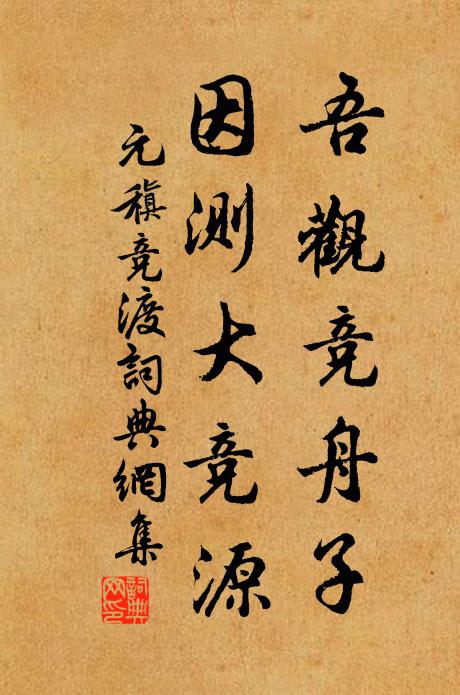 吾觀竞舟子
因测大竞源
元稹竞渡詞典網集
詞典网印